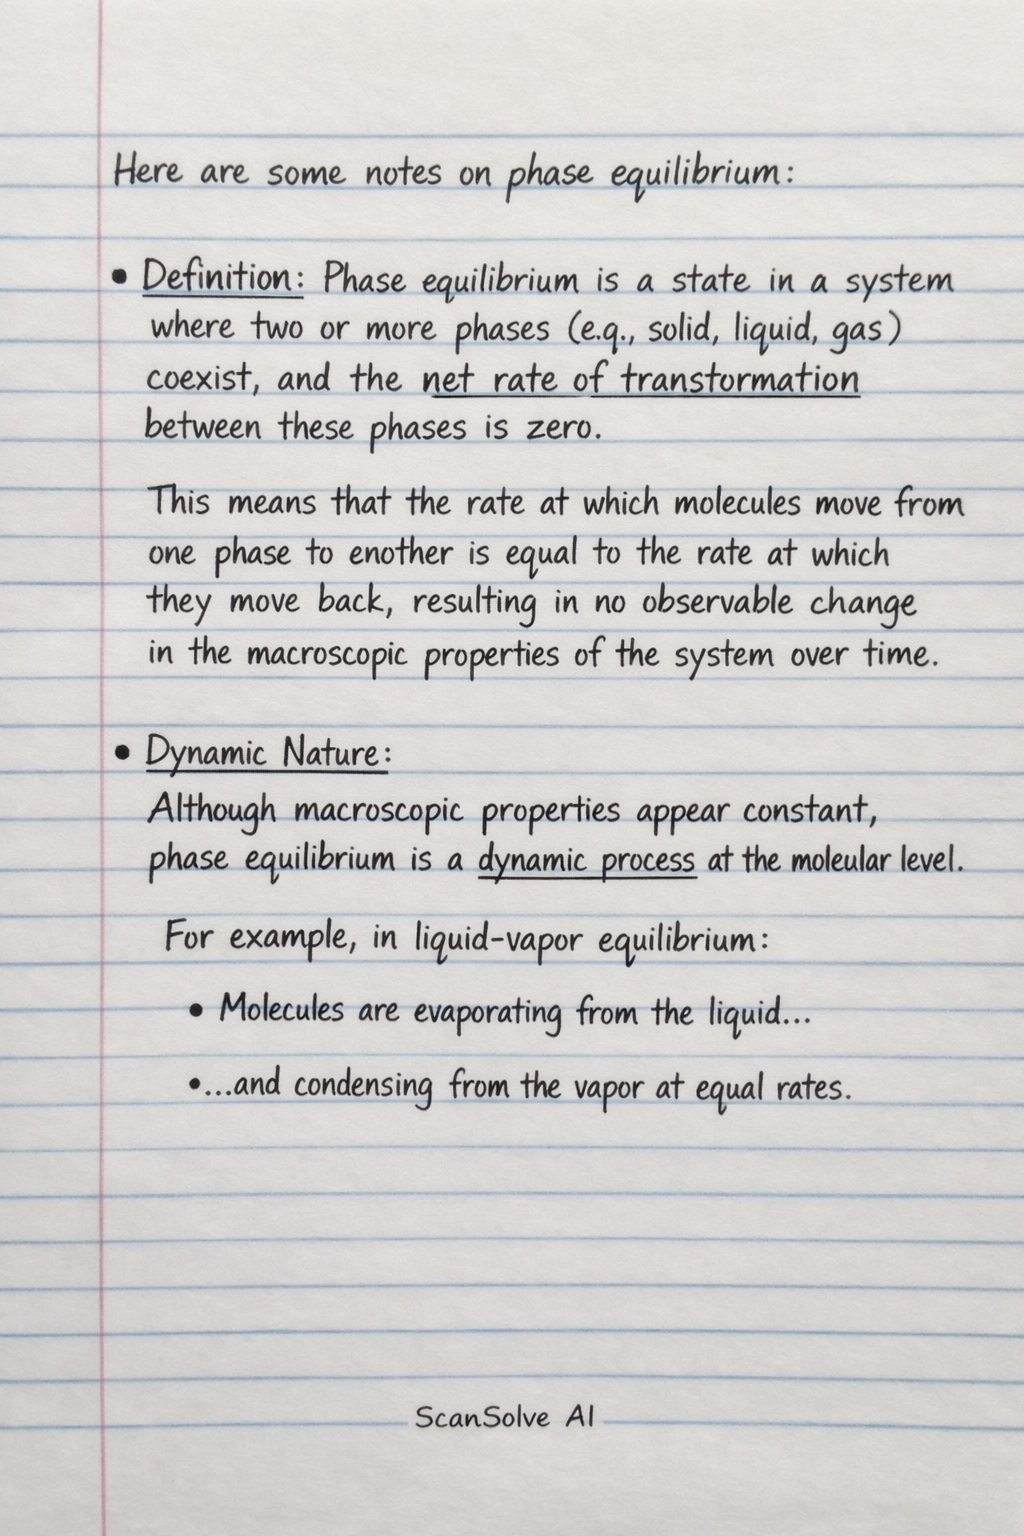 Here are some notes on phase equilibrium:
• Definition: Phase equilibrium is a state in a system
where two or more phases (e.q., solid, liquid, gas)
coexist, and the net rate of transtormation
between these phases is zero.
This means that the rate at which molecules move from
one phase to enother is equal to the rate at which
they move back, resulting in no observable change
in the macroscopic properties of the system over time.
• Dynamic Nature:
Although macroscopic properties appear constant,
phase equilibrium is a dynamic process at the moleular level.
For example, in liquid-vapor equilibrium:
• Molecules are evaporating from the liquid...
•...and condensing from the vapor at equal rates.
ScanSolve AI